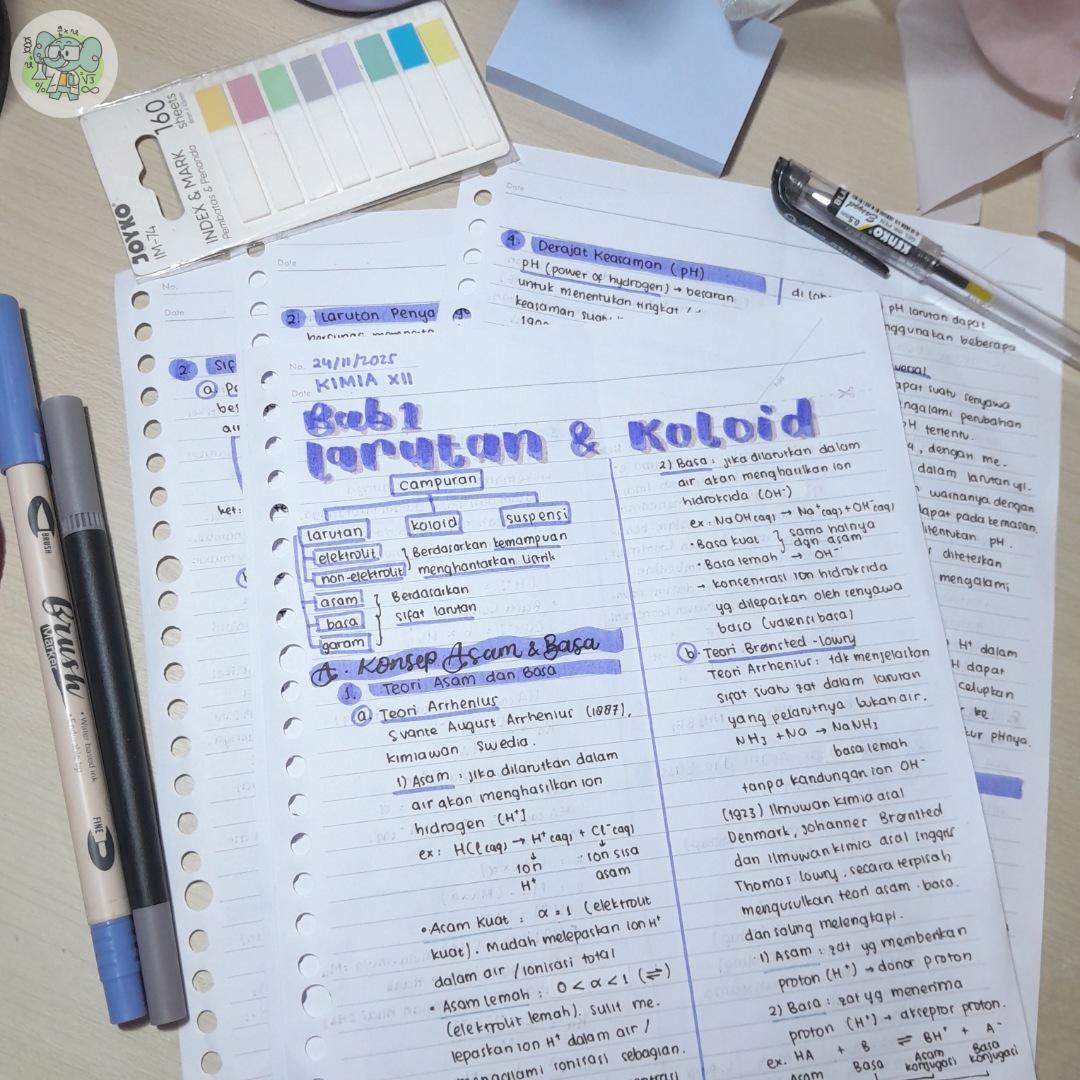 JOYKO
IM-74
INDEX & MARK
Pembatas & Penanda
160
sheets
KENKO
0.5mm
BRUSH
Brush
Marker
• Water based ink
FINE
No.
Date
2. Sif
a.
bes
ket:
Date
2. Larutan Penya
Date
4. Derajat Keasaman (pH)
pH (power of hydrogen) → besaran
untuk menentukan tingkat
keasaman suatu
pH larutan dapat
nggunakan beberapa
versal
apat suatu senyawa
ngalami perubahan
pH tertentu.
, dengan me.
dalam larutan uji.
warnanya dengan
dapat pada kemasan.
ditentukan pH.
diteteskan
mengalami
H⁺ dalam
H dapat
celupkan
ke
kur pHnya.
No. 24/11/2025
Date KIMIA XII
Bab 1
Larutan & Koloid
campuran
larutan
koloid
suspensi
elektrolit
non-elektrolit
} Berdasarkan kemampuan
menghantarkan listrik
asam
basa
garam
} Berdasarkan
sifat larutan
A. Konsep Asam & Basa
1. Teori Asam dan Basa
a. Teori Arrhenius
Svante August Arrhenius (1887),
kimiawan Swedia.
1) Asam : jika dilarutkan dalam
air akan menghasilkan ion
hidrogen [H⁺]
ex : HCl(aq) → H⁺(aq) + Cl⁻(aq)
↓ ↓
ion ion sisa
H⁺ asam
• Asam Kuat : α = 1 (elektrolit
kuat). Mudah melepaskan ion H⁺
dalam air / ionisasi total
• Asam lemah : 0 < α < 1 (⇌)
(elektrolit lemah). Sulit me.
lepaskan ion H⁺ dalam air /
mengalami ionisasi sebagian.
2) Basa : jika dilarutkan dalam
air akan menghasilkan ion
hidroksida (OH⁻)
ex : NaOH(aq) → Na⁺(aq) + OH⁻(aq)
• Basa kuat } sama halnya
• Basa lemah dgn asam
→ OH⁻
→ konsentrasi ion hidroksida
yg dilepaskan oleh senyawa
basa (valensi basa)
b. Teori Brønsted-Lowry
Teori Arrhenius : tdk menjelaskan
sifat suatu zat dalam larutan
yang pelarutnya bukan air.
NH₃ + Na → NaNH₃
basa lemah
tanpa kandungan ion OH⁻
(1923) Ilmuwan kimia asal
Denmark, Johanner Brønsted
dan ilmuwan kimia asal Inggris
Thomas Lowry, secara terpisah,
mengusulkan teori asam-basa.
dan saling melengkapi.
1) Asam : zat yg memberikan
proton (H⁺) → donor proton
2) Basa : zat yg menerima
proton (H⁺) → akseptor proton.
ex. HA + B ⇌ BH⁺ + A⁻
Asam Basa Asam konjugasi Basa konjugasi